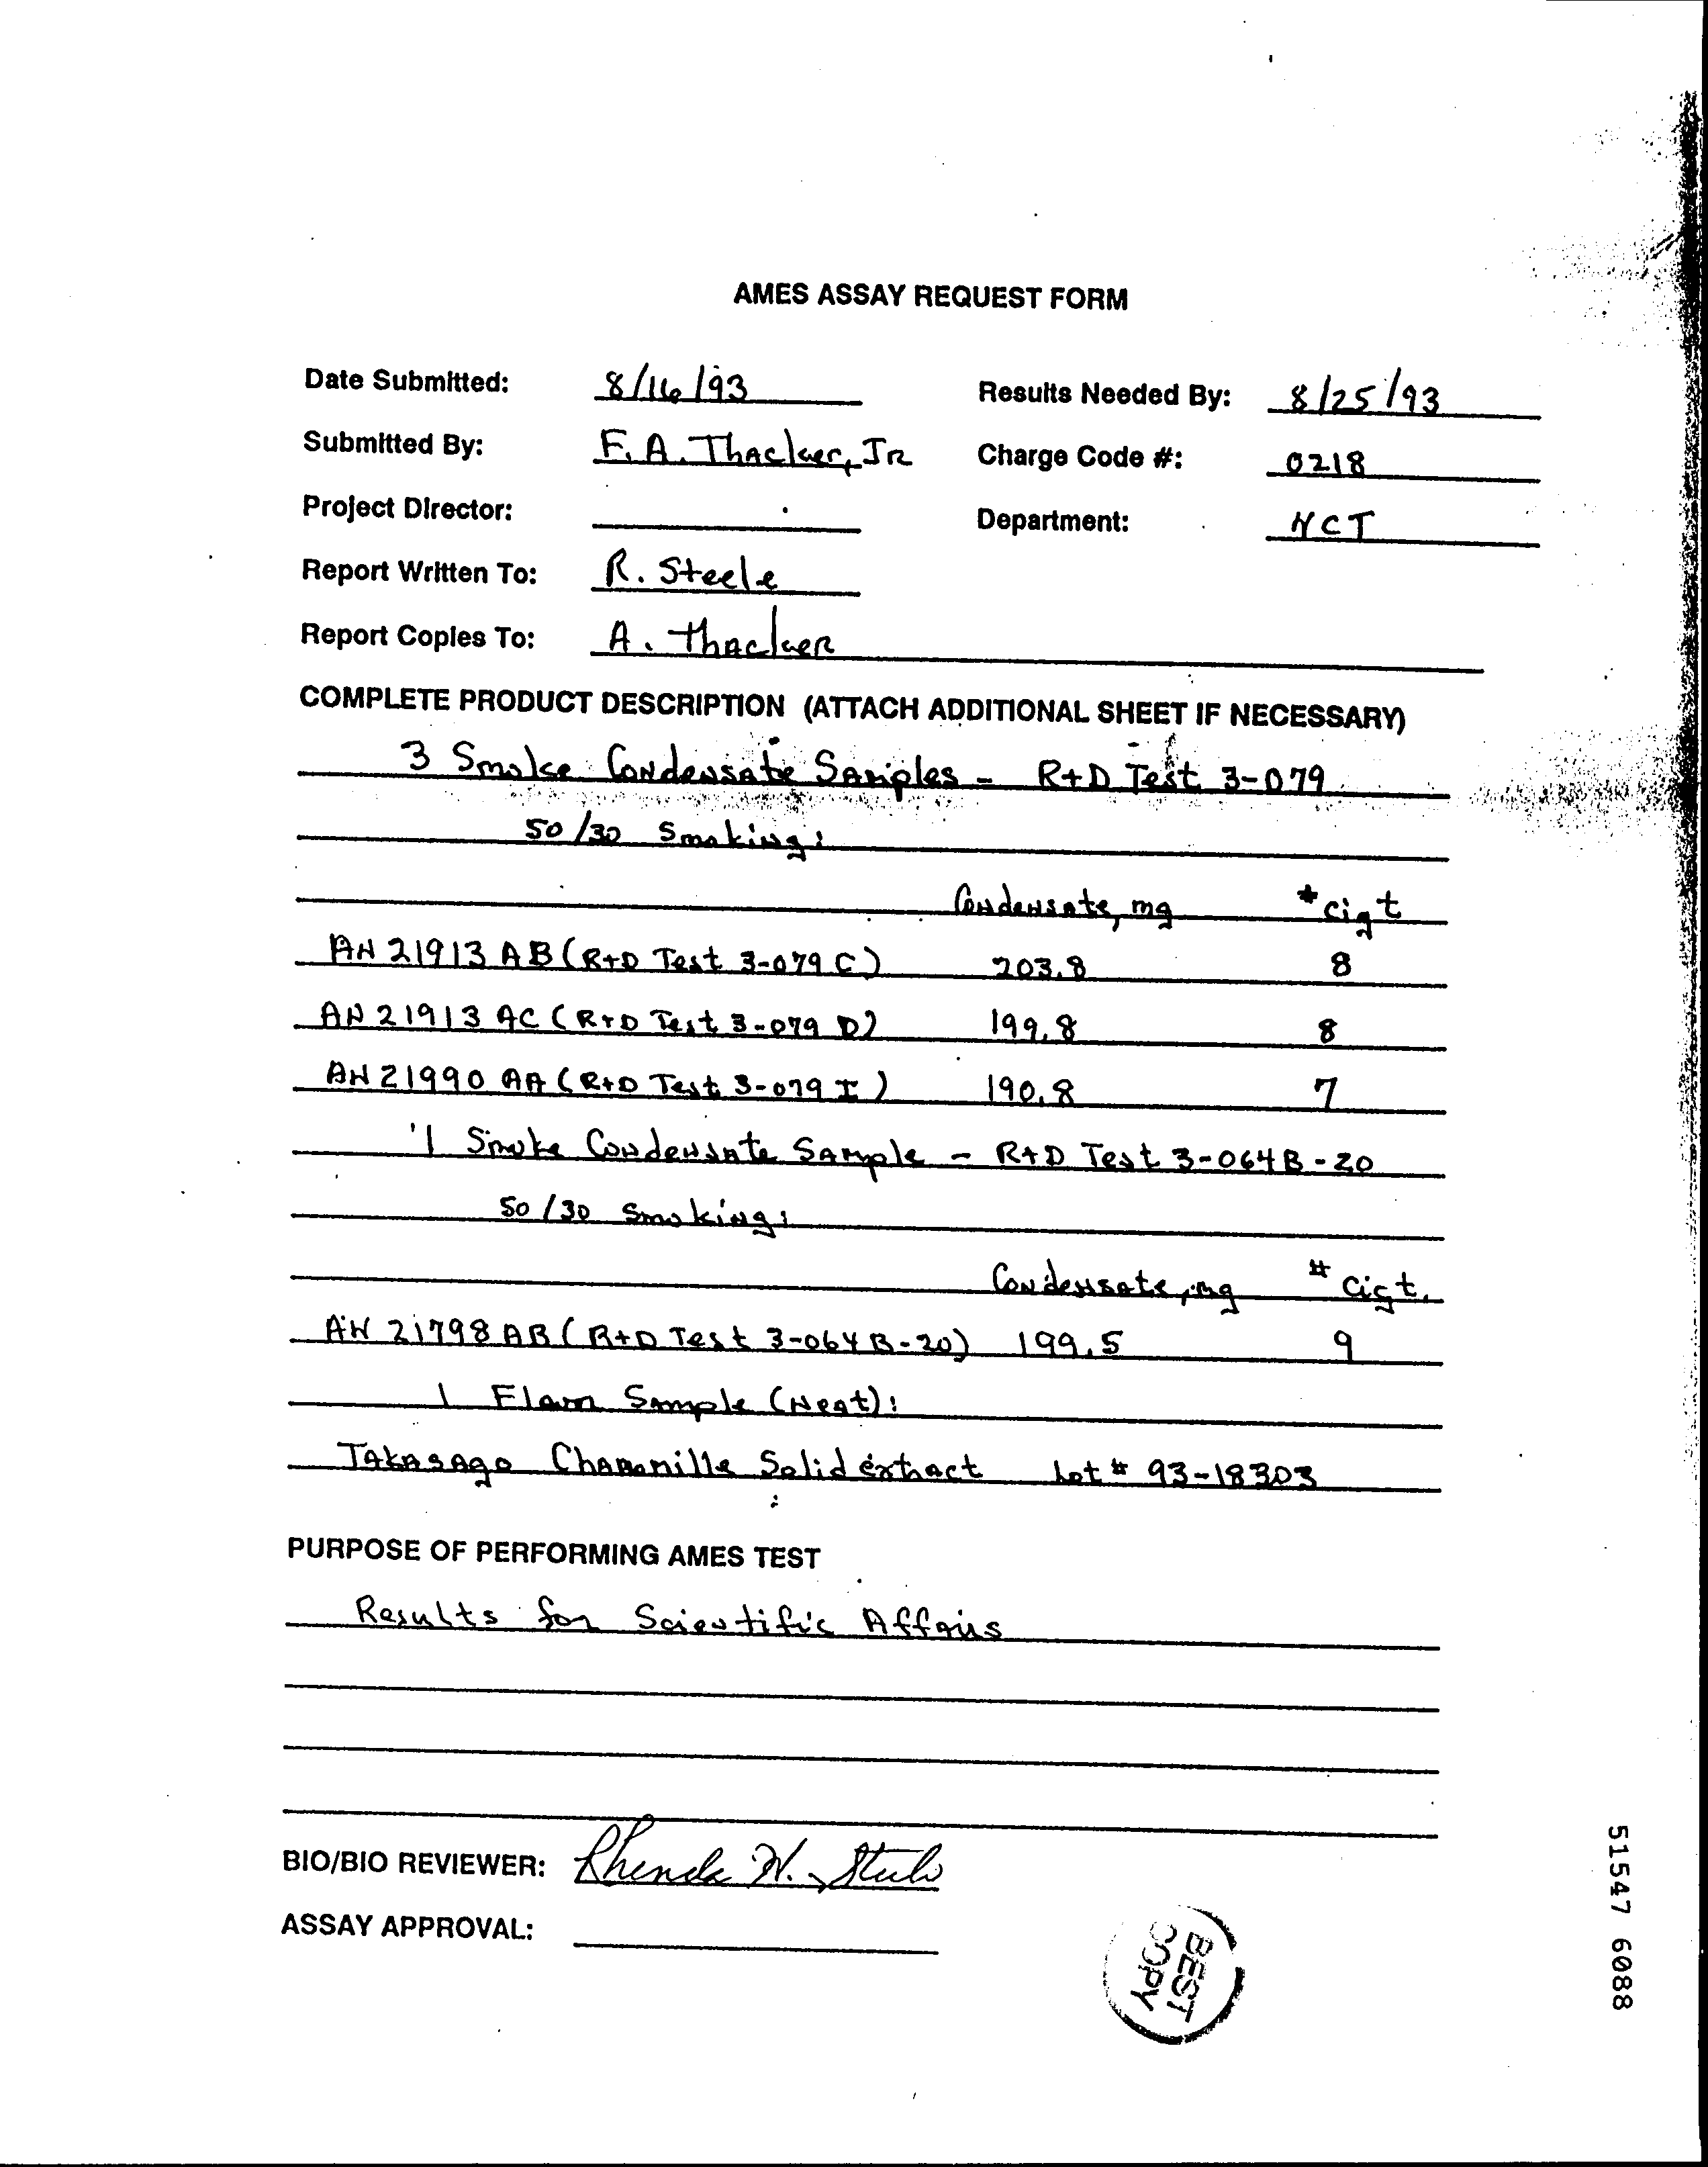 AMES ASSAY REQUEST FORM
Date Submitted: 8/16/93 Results Needed By: 8/25/93
Submitted By: F. A. Thacker, JR Charge Code #: 0218
Project Director: Department: NCT
Report Written To: R. Steele
Report Copies To: A. Thacker
COMPLETE PRODUCT DESCRIPTION (ATTACH ADDITIONAL SHEET IF NECESSARY)
3 Smoke Condensate Samples - R+D Test 3-079
50/30 Smoking:
Condensate, mg # cigt
AN 21913 AB (R+D Test 3-079 C) 203.8 8
AN 21913 AC (R+D Test 3-079 D) 199.8 8
AN 21990 AA (R+D Test 3-079 I) 190.8 7
1 Smoke Condensate Sample - R+D Test 3-064B-20
50/30 Smoking:
Condensate, mg # cigt.
AN 21798 AB (R+D Test 3-064 B-20) 199.5 9
1 Flavor Sample (Neat):
Takasago Chamomille Solid extract Lot # 93-18303
PURPOSE OF PERFORMING AMES TEST
Results for Scientific Affairs
BIO/BIO REVIEWER: Rhenda H. Steele
ASSAY APPROVAL:
BEST
COPY
51547 6088